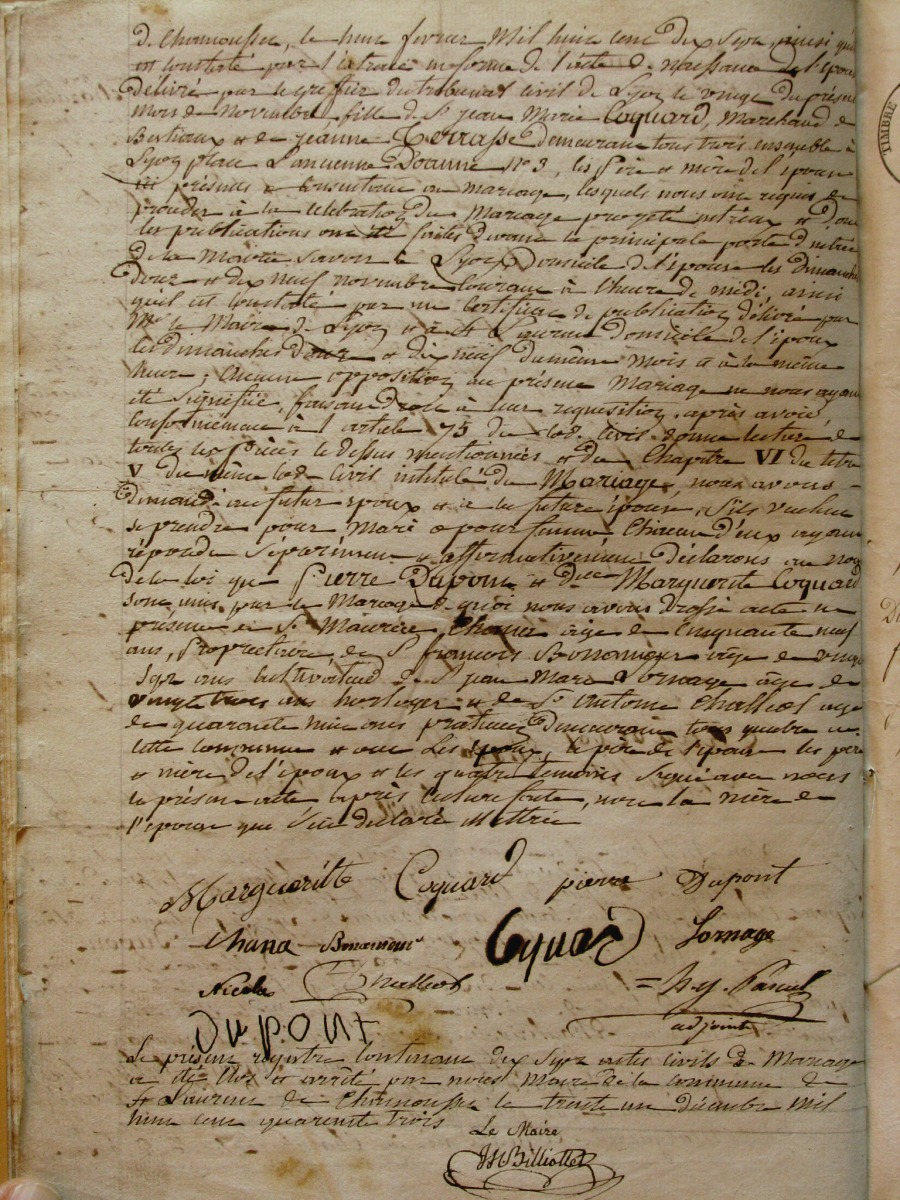 de Chamousset, le huit fevrier Mil huit cent dix Sept, ainsi qu'il
est constaté par l'extrait informe de l'acte de naissance de l'épouse
Délivré par le greffier du tribunal civil de Lyon le vingt du présent
mois de Novembre, fille de Sr jean Marie Coquard, Marchand de
Bestiaux et de jeanne Terrasse demeurant tous trois ensemble à
Lyon place L'ancienne Doanne N° 3, les père et mère de l'épouse
ici présents et consentens au mariage, lesquels nous ont requis de
proceder à la celebration du Mariage projeté entr'eux et dont
les publications ont été faites devant la principale porte d'entrée
de la Mairie Savoir à Lyon Domicile de l'épouse les dimanches
Douze et dix neuf novembre courant à l'heure de midi, ainsi
qu'il est constaté par un certificat de publication délivré par
Mr le Maire de Lyon et à St Laurent domicile de l'époux
les dimanches Douze et dix neuf du même mois et à la même
heure; Aucune opposition au présent Mariage ne nous ayant
été signifiée, faisant droit à leur requisition, après avoir
conformément à l'article 75 du Code Civil donné lecture de
toutes les pièces ci dessus mentionnées et du Chapitre VI du titre
V du même Code Civil intitulé du Mariage, nous avons
demandé au futur époux et à la future épouse, S'ils veulent
se prendre pour Mari et pour femme, Chacun d'eux ayant
répondu Séparément et affirmativement Déclarons au nom
de la loi que Pierre Dupont et Dlle Marguerite Coquard
sont unis par le Mariage de quoi nous avons Dressé acte en
présence de Sr Maurice Chanas âgé de Cinquante neuf
ans, Propriétaire, de Sr françois Bonnamour âgé de vingt
Sept ans cultivateur de Sr jean Marc Lornage âgé de
vingt trois ans horloger et de Sr Antoine Challiol âgé
de quarante huit ans praticien Demeurant tous quatre en
cette commune et ont Les époux, le père de l'épouse les père
et mère de l'époux et les quatre témoins Signé avec nous
le présent acte après lecture faite, non la mère de
l'épouse que de ce déclaré illettrée
Margueritte Coquard pierre Dupont
Chana Bonamour Coquard Lornage
Nicolas Challiol = Pascal
Dupont adjoint
Le présent registre Contenant dix Sept actes civils de Mariage
a été Clos et arrêté par nous Maire de la commune de
St Laurent de Chamousset le trente un décembre mil
huit cent quarante trois
Le Maire
Billiottet